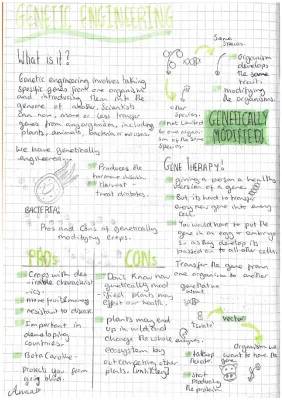 GENETIC ENGINEERING
What is it?
Genetic engineering involves taking
specific genes from one organism
and introducing them into the
genome of another. Scientists
can now, more or less transfer
genes from any organism, including
plants, animals, bacteria or viruses.
We have genetically
engineered
Produces the
hormone insulin
Harvest
treat diabetes.
BACTERIA:
Pros and Cons of genetically
modifying crops.
PROS
Crops with des
irable characterist
ics:
more fruit
resistant to disease
Important in
developing
countries.
Beta Carotine -
Protects you from
going blind.
CONS
Don't know how
genetically modi
fied plants may
effect our health.
plants may end
up in wild and
change the whole
ecosystem by
out competing other
plants.
Same
species.
Organism
develops
the same
traits.
modifying
the organisms.
other
Species.
not limited
to one organi
sm of the same
species.
GENETICALLY
MODIFIED
GENE THERAPY:
giving a person a healthy
version of a gene.
But its hard to transfer
new gene into every
cell.
You would have to put the
gene in an egg or embryo
so as they develop its
passed on to all other cells.
Transfer the gene from
one organism to another
enzymes.
'isolate'
vector
Organism we
want to have the
takeup
start
producing
the protein